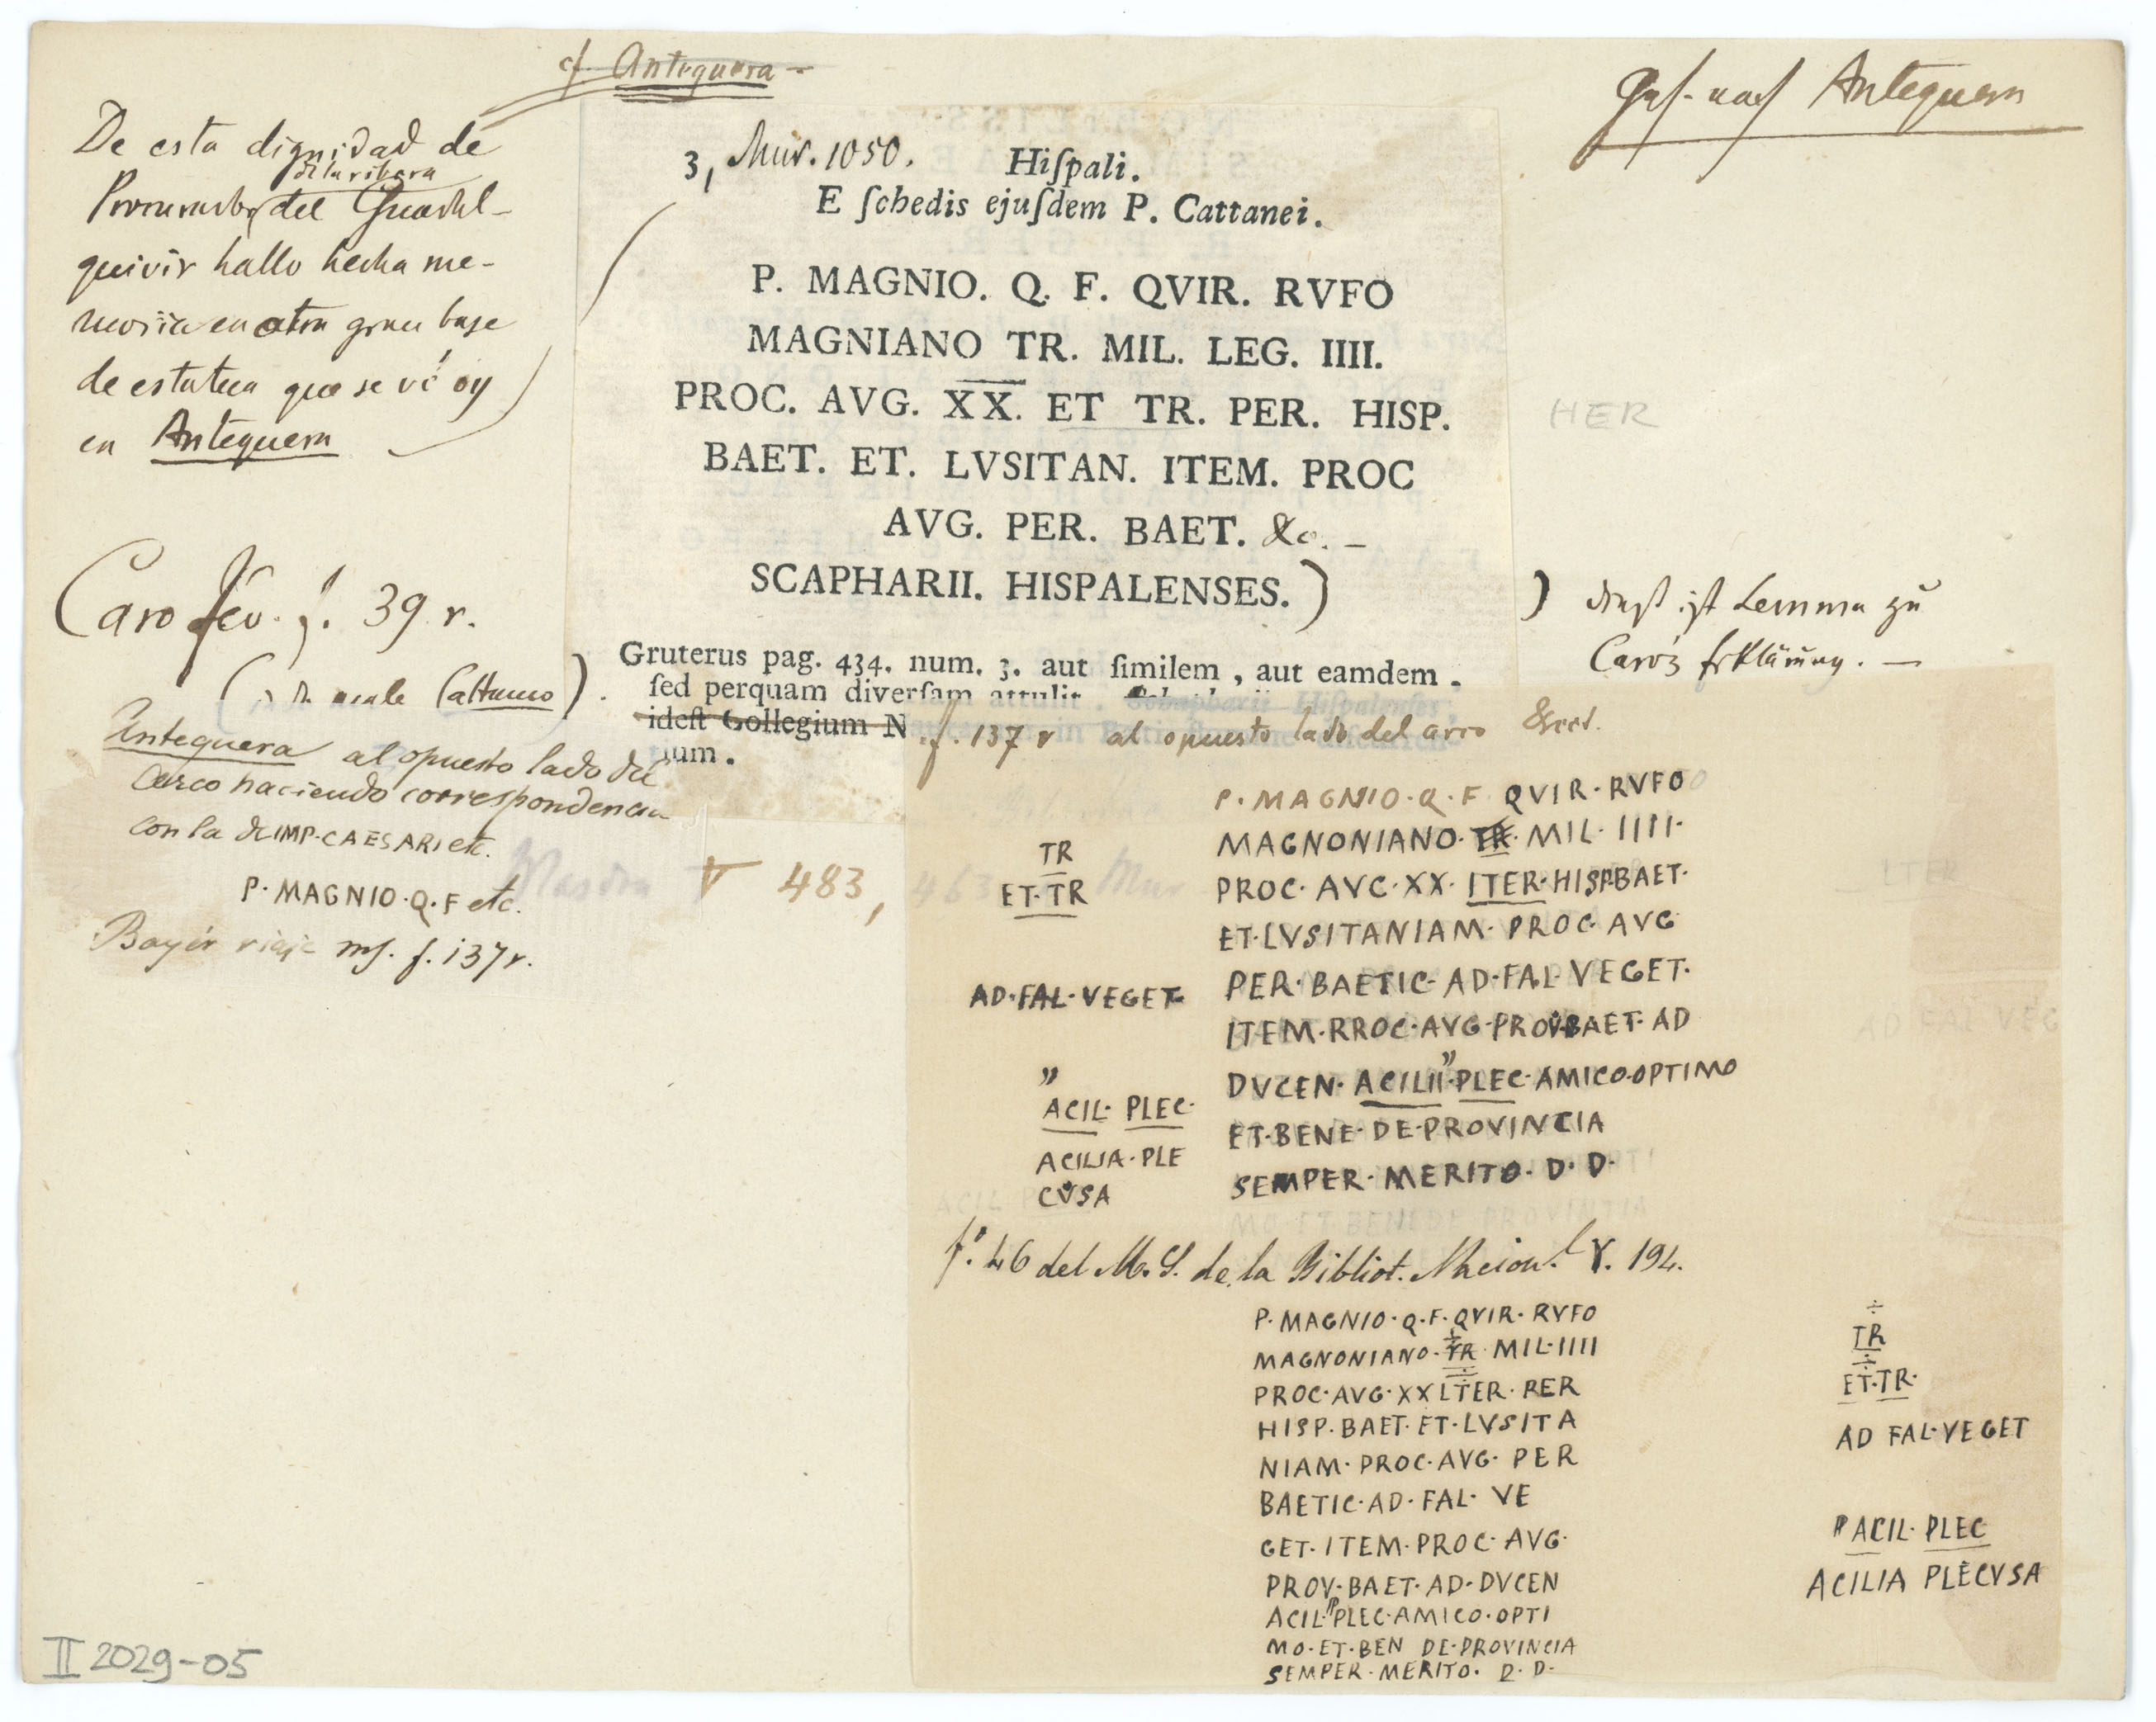 cf Antequera —
Antequera
De esta dignidad de
de la ribera
Procurador del Guadal-
quivir hallo hecha me-
moria en otra gran base
de estatua que se vé oy
en Antequera
Caro sev. f. 39 r.
Cattaneo ) .
Antequera al opuesto lado del
arco haciendo correspondencia
con la de IMP·CAESARI etc.
P·MAGNIO·Q·F etc.
Bayer viaje ms. f. 137 r.
II 2029-05
3, Mur. 1050.
Hiſpali.
E ſchedis ejuſdem P. Cattanei.
P. MAGNIO. Q. F. QVIR. RVFO
MAGNIANO TR. MIL. LEG. IIII.
PROC. AVG. XX. ET TR. PER. HISP.
BAET. ET. LVSITAN. ITEM. PROC
AVG. PER. BAET. &c. —
SCAPHARII. HISPALENSES. )
Gruterus pag. 434. num. 3. aut ſimilem, aut eamdem.
ſed perquam diverſam attulit.
ideſt Collegium N
um.
HER
) dieß ist Lemma zu
Caro's Erklärung. —
483,
f. 137 r al opuesto lado del arco
P·MAGNIO·Q·F QVIR·RVFO
MAGNONIANO·TR·MIL·IIII·
PROC·AVC·XX·ITER·HISP·BAET·
ET·LVSITANIAM·PROC·AVG
PER·BAETIC·AD·FAL·VEGET·
ITEM·RROC·AVG·PROV·BAET·AD
DVCEN·ACILII"·PLEC·AMICO·OPTIMO
ET·BENE·DE·PROVINCIA
SEMPER·MERITO·D·D·
TR
ET·TR
AD·FAL·VEGET
"
ACIL·PLEC·
ACILIA·PLE
CVSA
fº. 46 del M.S. de la Bibliot. Nacion.l Y. 194.
P·MAGNIO·Q·F·QVIR·RVFO
MAGNONIANO·TR·MIL·IIII
PROC·AVG·XX LTER·RER
HISP·BAET·ET·LVSITA
NIAM·PROC·AVG·PER
BAETIC·AD·FAL·VE
GET·ITEM·PROC·AVG·
PROV·BAET·AD·DVCEN
ACIL·PLEC·AMICO·OPTI
MO·ET·BEN DE·PROVINCIA
SEMPER·MERITO· D·D·
TR
ET·TR·
AD FAL·VEGET
ACIL·PLEC
ACILIA PLECVSA